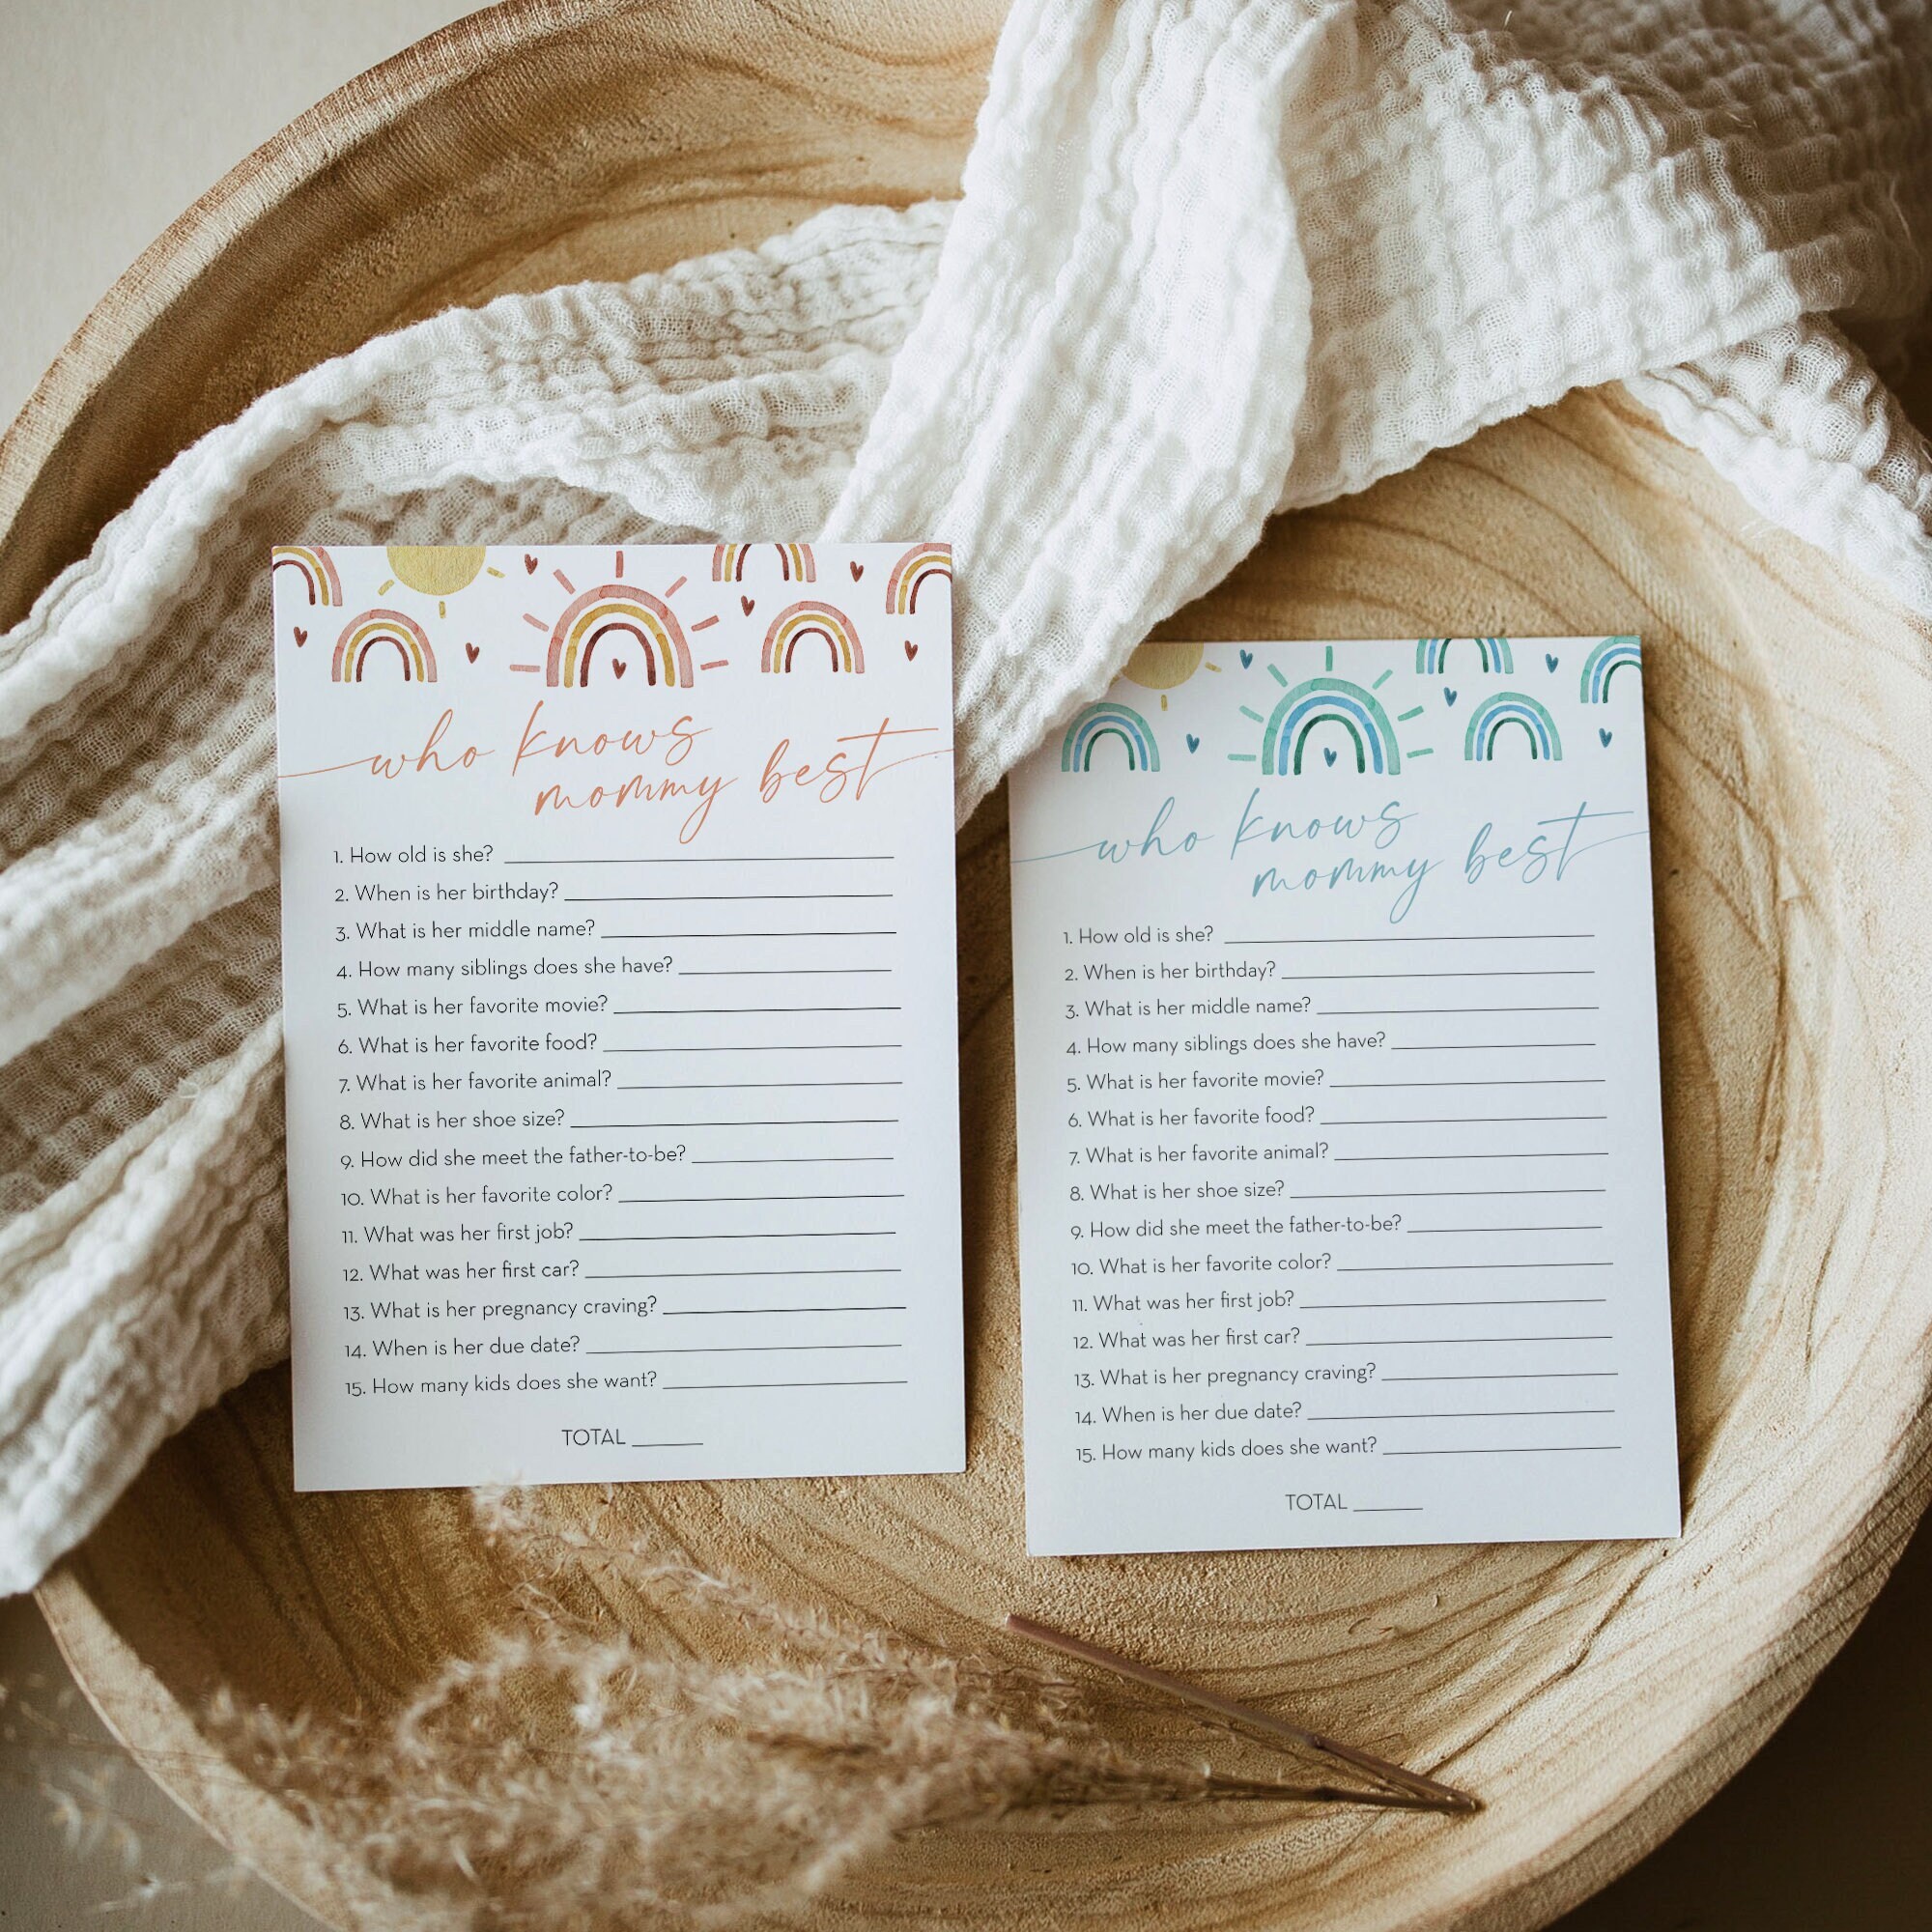 who knows
mommy best
1. How old is she?
2. When is her birthday?
3. What is her middle name?
4. How many siblings does she have?
5. What is her favorite movie?
6. What is her favorite food?
7. What is her favorite animal?
8. What is her shoe size?
9. How did she meet the father-to-be?
10. What is her favorite color?
11. What was her first job?
12. What was her first car?
13. What is her pregnancy craving?
14. When is her due date?
15. How many kids does she want?
TOTAL
who knows
mommy best
1. How old is she?
2. When is her birthday?
3. What is her middle name?
4. How many siblings does she have?
5. What is her favorite movie?
6. What is her favorite food?
7. What is her favorite animal?
8. What is her shoe size?
9. How did she meet the father-to-be?
10. What is her favorite color?
11. What was her first job?
12. What was her first car?
13. What is her pregnancy craving?
14. When is her due date?
15. How many kids does she want?
TOTAL